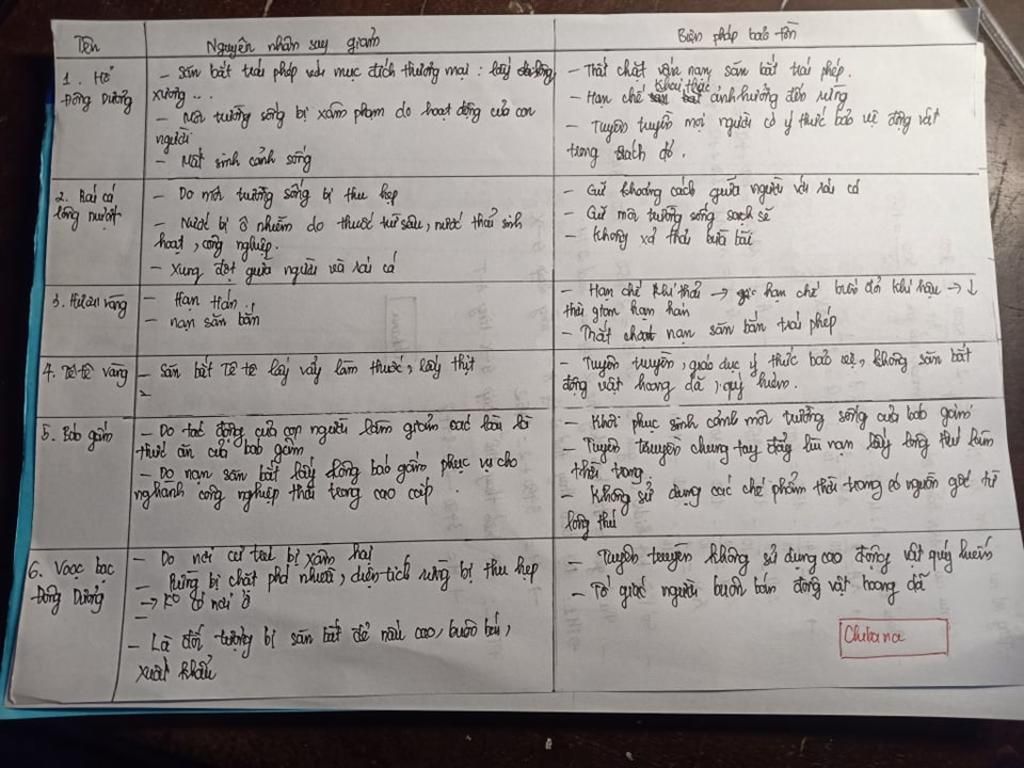 Tên
Nguyên nhân suy giảm
Biện pháp bảo tồn
1. Hổ
Đông Dương
- Săn bắt trái phép với mục đích thương mại: lấy da lông,
xương...
- Môi trường sống bị xâm phạm do hoạt động của con
người
- Mất sinh cảnh sống
- Thắt chặt vấn nạn săn bắt trái phép.
- Hạn chế khai thác ảnh hưởng đến rừng
- Tuyên tuyền mọi người có ý thức bảo vệ động vật
trong sách đỏ.
2. Rái cá
lông mượt
- Do môi trường sống bị thu hẹp
- Nước bị ô nhiễm do thuốc trừ sâu, nước thải sinh
hoạt, công nghiệp.
- Xung đột giữa người và rái cá
- Giữ khoảng cách giữa người với rái cá
- Giữ môi trường sống sạch sẽ
- Không xả thải bừa bãi
3. Hươu vàng
- Hạn Hán
- nạn săn bắn
- Hạn chế khí thải → hạn chế biến đổi khí hậu → ↓
thời gian hạn hán
- Thắt chặt nạn săn bắn trái phép
4. Tê tê vàng
- Săn bắt Tê tê lấy vẩy làm thuốc, lấy thịt
- Tuyên truyền, giáo dục ý thức bảo vệ, không săn bắt
động vật hoang dã, quý hiếm.
5. Báo gấm
- Do tác động của con người làm giảm các loài là
thức ăn của báo gấm
- Do nạn săn bắt lấy lông báo gấm phục vụ cho
nghành công nghiệp thời trang cao cấp.
- Khôi phục sinh cảnh môi trường sống của báo gấm
- Tuyên truyền chung tay đẩy lùi nạn lấy lông thú làm
thời trang.
- Không sử dụng các chế phẩm thời trang có nguồn gốc từ
lông thú
6. Voọc bạc
Đông Dương
- Do nơi cư trú bị xâm hại
- Rừng bị chặt phá nhiều, diện tích rừng bị thu hẹp
→ Ko có nơi ở
-
- Là đối tượng bị săn bắt để nấu cao, buôn bán,
xuất khẩu
- Tuyên truyền không sử dụng cao động vật quý hiếm
- Tố giác người buôn bán động vật hoang dã
Chibana